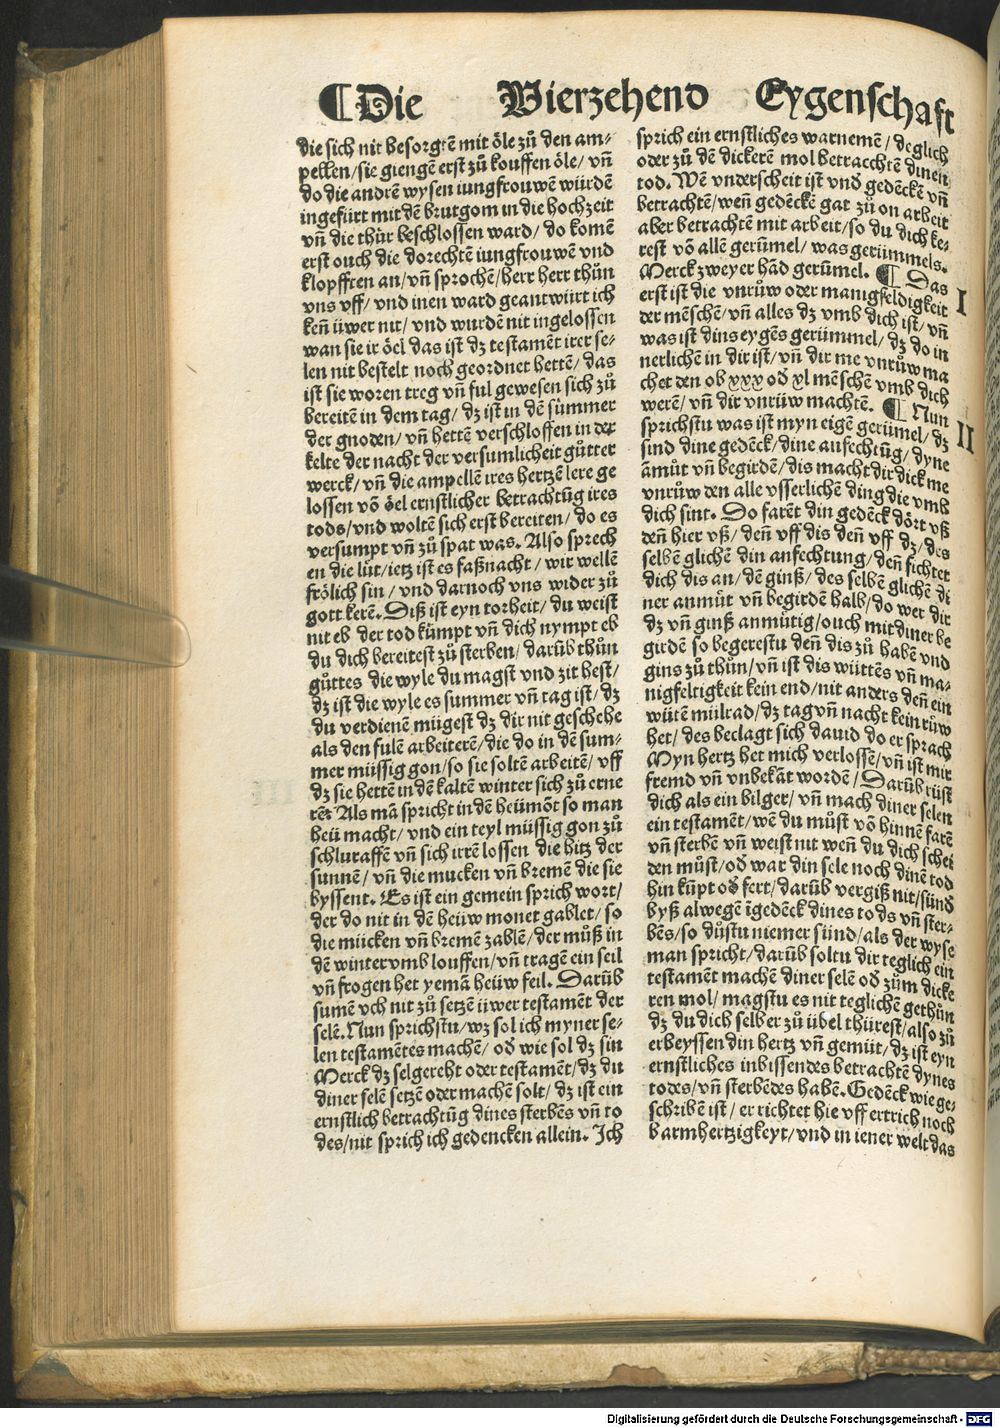 ¶Die Vierzehend Eygenschaft
die sich nit besorgtē mit öle zů den am-
pellen/sie giengē erst zů kouffen öle/ vn̄
do die andrē wysen iungfrouwē würdē
ingefürt mit dē brutgom in die hochzeit
vn̄ die thür beschlossen ward/ do komē
erst ouch die dorechtē iungfrouwē vnd
klopfften an/vn̄ sprochē/herr herr thůn
vns vff/ vnd inen ward geantwürt ich
ken̄ üwer nit/ vnd wurdē nit ingelossen
wan sie ir öel das ist dz testamēt irer se-
len nit bestelt noch geordnet hettē/ das
ist sie woren treg vn̄ ful gewesen sich zů
bereitē in dem tag/ dz ist in dē summer
der gnoden/ vn̄ hettē verschloffen in der
kelte der nacht der versumlicheit gůtter
werck/ vn̄ die ampellē ires hertzē lere ge
lossen vō öel ernstlicher betrachtūg ires
tods/vnd woltē sich erst bereiten/ do es
versumpt vn̄ zů spat was. Also sprech
en die lüt/ietz ist es faßnacht/ wir wellē
frölich sin/ vnd darnoch vns wider zů
gott kerē. Diß ist eyn torheit/ du weist
nit eb der tod kümpt vn̄ dich nympt eb
du dich bereitest zů sterben/ darūb thůn
gůttes die wyle du magst vnd zit hest/
dz ist die wyle es summer vn̄ tag ist/ dz
du verdienē mügest dz dir nit geschehe
als den fulē arbeiterē/die do in dē sum-
mer müssig gon/so sie soltē arbeitē/ vff
dz sie hettē in dē kaltē winter sich zů erne
rē. Als mā spricht in dē heümōt so man
heü macht/ vnd ein teyl müssig gon zů
schluraffē vn̄ sich irrē lossen die hitz der
sunnē/ vn̄ die mucken vn̄ bremē die sie
byssent. Es ist ein gemein sprich wort/
der do nit in dē heüw monet gablet/ so
die mücken vn̄ bremē zablē/der můß in
dē winter vmb louffen/vn̄ tragē ein seil
vn̄ frogen het yemā heüw feil. Darūb
sumē vch nit zů setzē üwer testamēt der
selē. Nun sprichstu/wz sol ich myner se-
len testamētes machē/ od̄ wie sol dz sin
Merck dz selgereht oder testamēt/dz du
diner selē setzē oder machē solt/ dz ist ein
ernstlich betrachtūg dines sterbēs vn̄ to
des/nit sprich ich gedencken allein. Ich
sprich ein ernstliches warnemē/ deglich
oder zů dē dickerē mol betracchtē dinen
tod. Wē vnderscheit ist vnd̄ gedēckē vn̄
betrachtē/wen̄ gedēckē gat zů on arbeit
aber betrachtē mit arbeit/so du dich ke-
rest vō allē gerūmel/ was gerümmels.
Merck zweyer hād gerūmel. ¶ Das
I
erst ist die vnrůw oder manigfeldigkeit
der mēschē/vn̄ alles dz vmb dich ist/vn̄
was ist dins eygēs gerümmel/ dz do in
nerlichē in dir ist/vn̄ dir me vnrůw ma
chet den ob xxx od̄ xl mēschē vmb dich
werē/ vn̄ dir vnrüw machtē. ¶ Nun
II
sprichstu was ist myn eigē gerūmel/ dz
sind dine gedēck/dine anfechtūg/ dyne
āmůt vn̄ begirdē/dis macht dir dick me
vnrůw den alle vsserlichē ding die vmb
dich sint. So farēt din gedēck dört vß
den̄ hier vß/ den̄ vff dis den̄ vff dz/des
selbē glichē din anfechtung/den̄ fichtet
dich dis an/dē ginß/des selbē glichē di
ner anmůt vn̄ begirdē halb/do wer dir
dz vn̄ ginß anmütig/ouch mit diner be
girdē so begerestu den̄ dis zů habē vnd
gins zů thůn/vn̄ ist dis wüttēs vn̄ ma-
nigfeltigkeit kein end/nit anders den̄ ein
wütē mülrad/dz tag vn̄ nacht kein růw
het/ des beclagt sich dauid do er sprach
Myn hertz het mich verlossē/vn̄ ist mir
fremd vn̄ vnbekāt wordē/ Darūb rüst
dich als ein bilger/ vn̄ mach diner selen
ein testamēt/wē du můst vō hinnē farē
vn̄ sterbē vn̄ weist nit wen̄ du dich schei
den můst/od̄ war din sele noch dinē tod
hin kūpt od̄ fert/darūb vergiß nit/sūnd
byß alwegē īgedēck dines tods vn̄ ster-
bēs/so důstu niemer sünd/als der wyse
man spricht/darūb soltu dir teglich ein
testamēt machē diner selē od̄ zům dicke
ren mol/ magstu es nit teglichē gethůn
dz du dich selber zů übel thürest/also zů
erbeyssen din hertz vn̄ gemüt/dz ist eyn
ernstliches inbissendes betrachtē dynes
todes/vn̄ sterbēdes habē. Gedēck wie ge-
schribē ist/ er richtet hie vff ertrich noch
barmhertzigkeyt/vnd in iener welt das
Digitalisierung gefördert durch die Deutsche Forschungsgemeinschaft - DFG